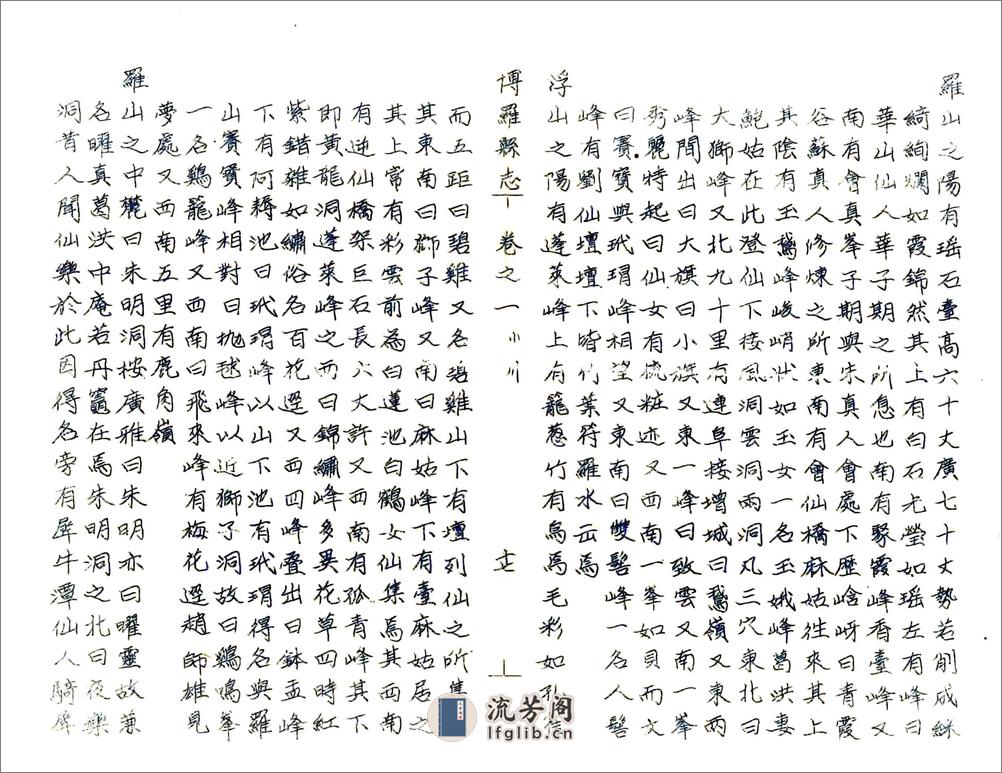 羅山之陽有瑤石臺高六十丈廣七十丈勢若削成綵
綺絢爛如霞錦然其上有白石尤瑩如瑤左有峰曰
華山仙人華子期之所息也南有聚霞峰香臺峰又
南有會真峯子期與朱真人會處下歷峆岈曰青霞
谷蘇真人修煉之所東南有會仙橋麻姑徃來其上
其陰有玉鵞峰峻峭狀如玉女一名玉娥峰葛洪妻
鮑姑在此登仙下接風洞雲洞雨洞凡三穴東北曰
大獅峰又北九十里有連阜接增城曰鵞嶺又東兩
峰間出曰大旗曰小旗又東一峰曰致雲又南一峯
秀麗特起曰仙女有梳粧迹又西南一峯如貝而文
曰賽寶與玳瑁峰相望又東南曰雙髻峰一名人髻
峰有劉仙壇壇下皆竹葉符羅水出焉
浮山之陽有蓬萊峰上有籠葱竹有鳥焉毛彩如孔
博羅縣志 卷之一 山川
而五距曰碧雞又名碧雞山下有壇列仙之所集
其東南曰獅子峰又南曰麻姑峰下有臺麻姑居之
其上常有彩雲前為白蓮池白鶴女仙集焉其西南
有迎仙橋架巨石長六丈許又西南有孤青峰其下
即黃龍洞蓬萊峰之西曰錦繡峰多異花草四時紅
紫錯雜如繡俗名百花逕又西四峰叠出曰鉢盂峰
下有阿耨池曰玳瑁峰以山下池有玳瑁得名與羅
山賽寶峰相對曰拋毬峰以近獅子洞故曰鷄鳴峯
一名鷄籠峰又西南曰飛來峰有梅花逕趙師雄見
夢處又西南五里有鹿角嶺
羅山之中麓曰朱明洞按廣雅曰朱明亦曰曜靈故兼
名曜真葛洪中庵若丹竈在焉朱明洞之北曰夜樂
洞昔人聞仙樂於此因得名旁有犀牛潭仙人騎犀
流芳阁
lfglib.cn